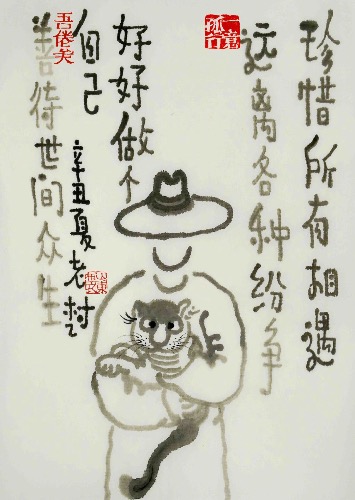 珍惜所有相遇
远离各种纷争
好好做个
自己
善待世间众生
辛丑夏老树
一意孤行